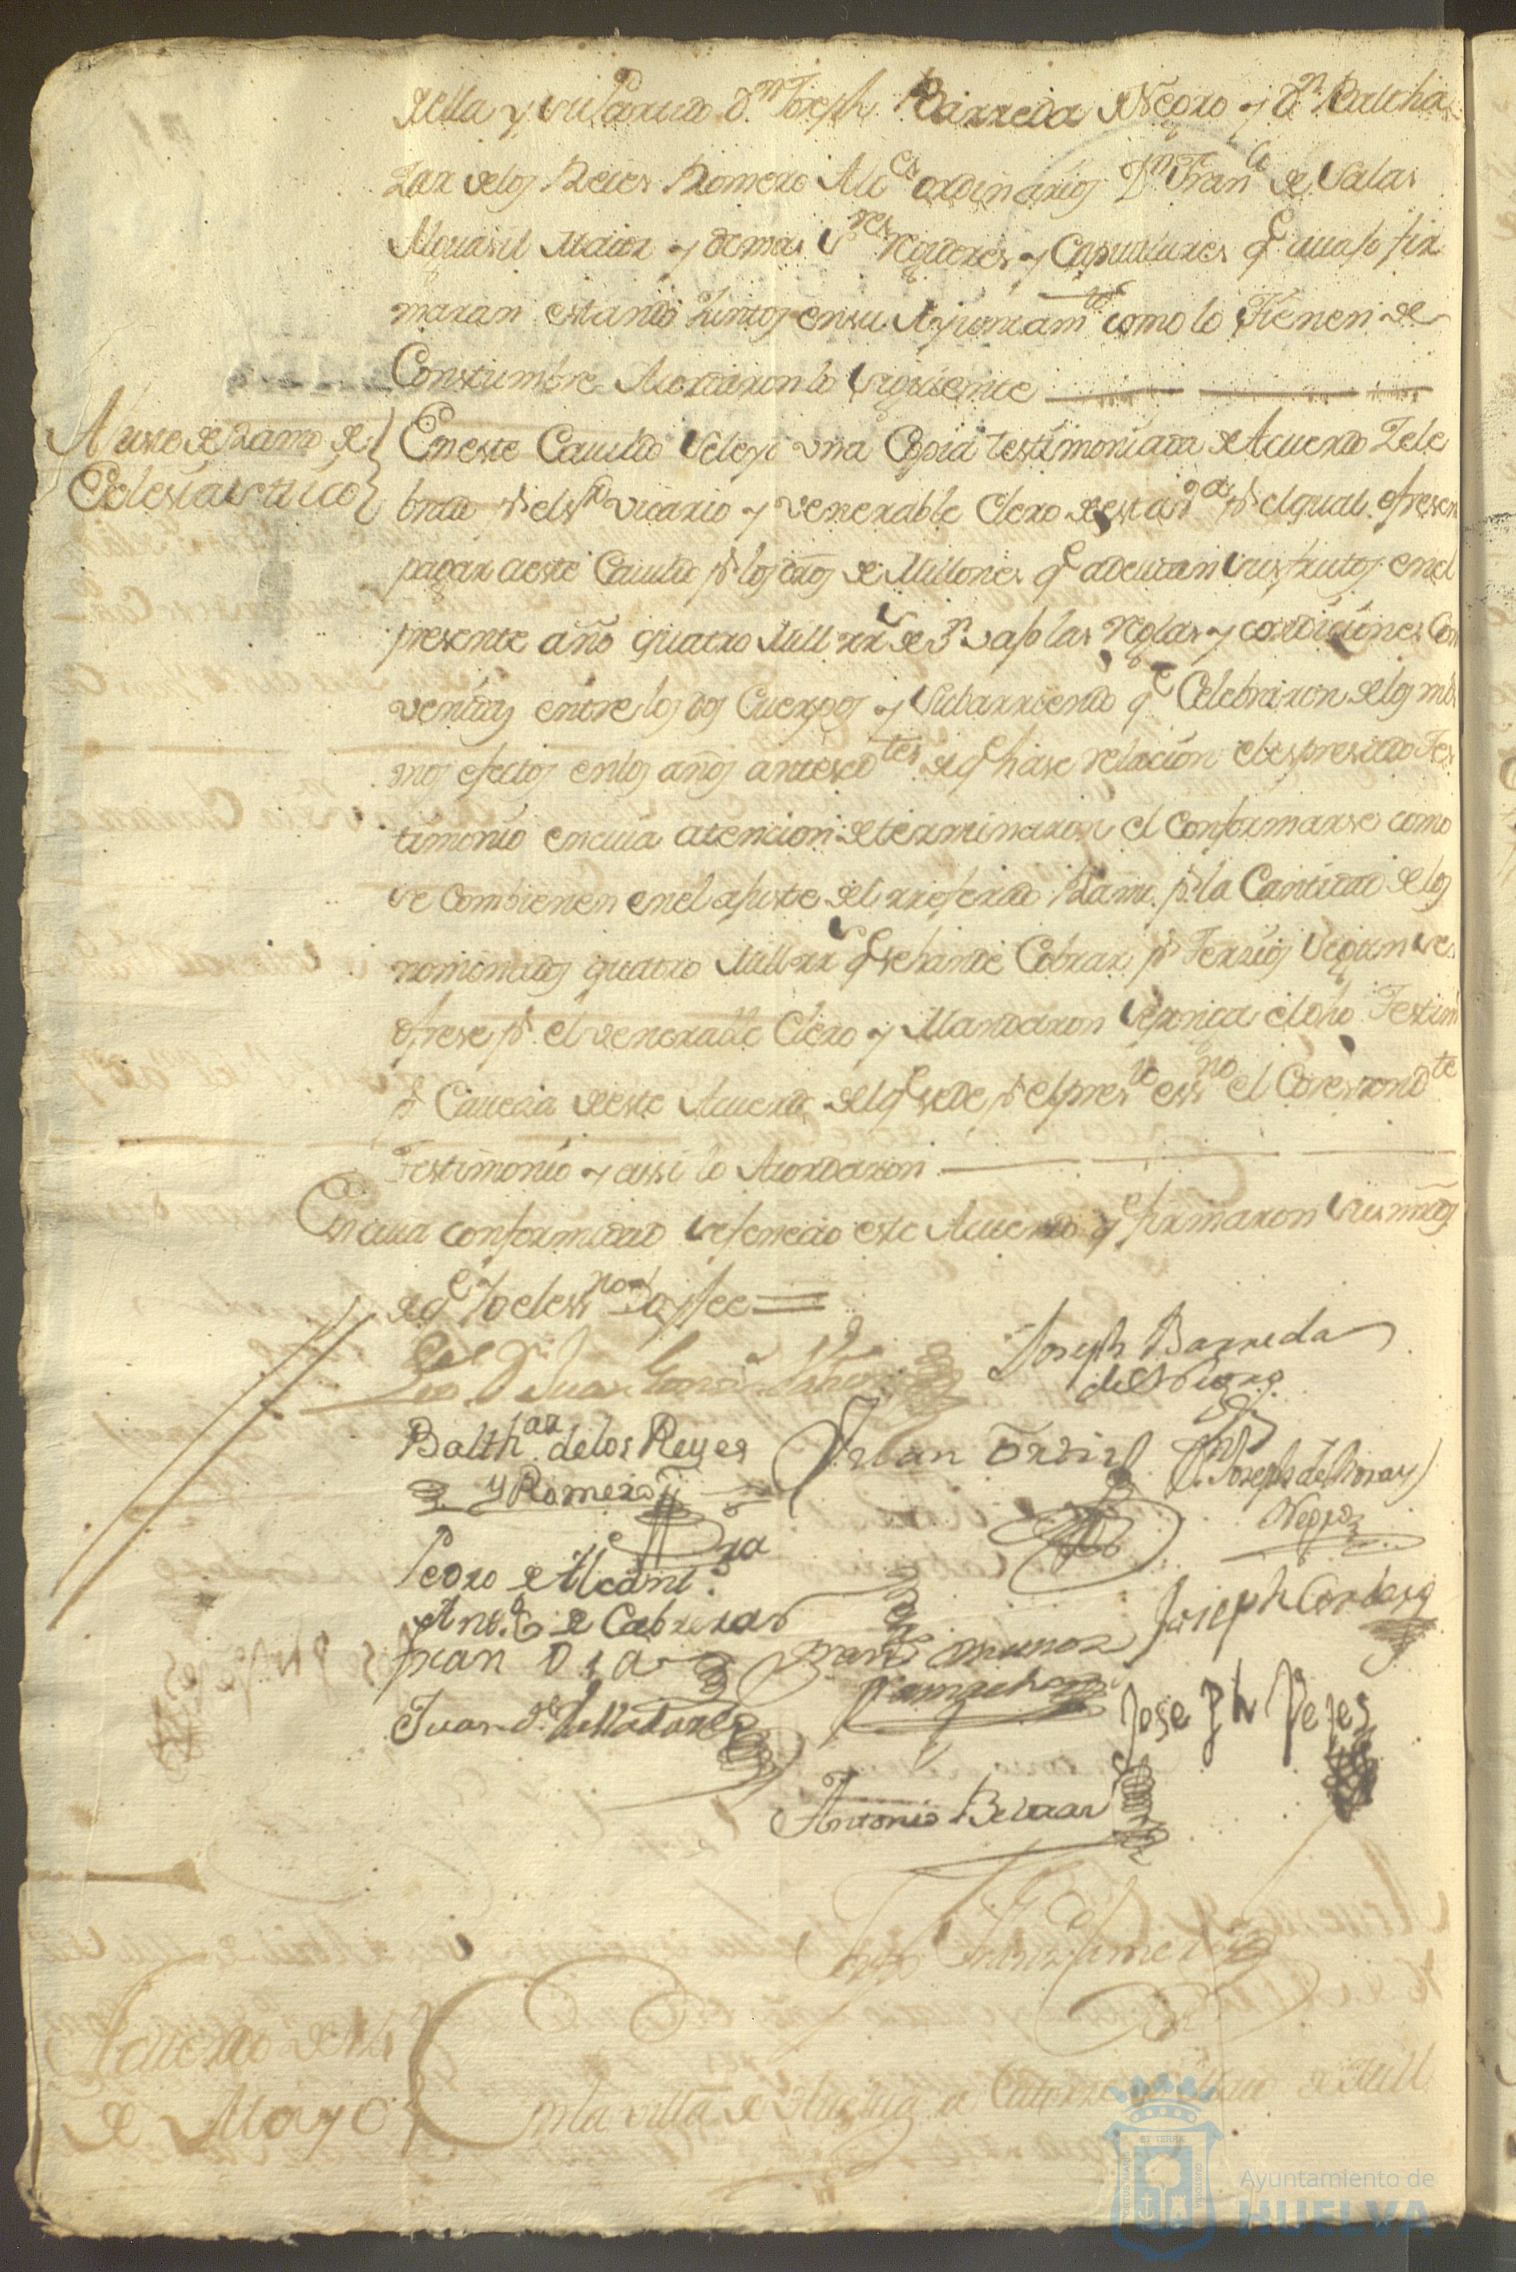 della y su Partido D.n Joseph Barreda de Negro y D.n Baltha
zar de los Reies Romero Alc.es ordinarios D.n Fran.co de Salas
Alguasil Maior y demas S.res Regidores y Capitulares q. auajo fir
maran estando Juntos en su Ayuntam.to como lo tienen de
Constumbre Acordaron lo siguiente
Ajuste de Ramo de
Eclesiastico
En este Cauildo se leyo una Copia testimoniada de Acuerdo Zele
brado p.r el S.r Vicario y venerable Clero de esta v.a p.r el qual ofresen
pagar a este Cauildo p.r los dros de Millones q. adeudan sus frutos en el
presente año quatro Mill rr.s de v.n vajo las Reglas y condiciones Con
venidas entre los dos Cuerpos y Subarriendo q.e Celebraron de los mis
mos efectos en los años antesed.tes de q. hase relacion el espresado Tes
timonio en cuia atencion determinaron el conformarse como
se combienen en el ajuste del rreferido Ramo p.r la Cantidad de los
nominados quatro Mill rr.s q. se han de Cobrar p.r Terzios segun se
ofrese p.r el venerable Clero y Mandaron se ponga el dho Testim
p.r Caueza deste Acuerdo del q. se de p.r el pres.te ess.no el Corespond.te
Testimonio y assi lo Acordaron
En cuia conformidad se fenecio este Acuerdo q.e firmaron sus mrds
de q.e Yo el ess.no Doy fee
Joseph Barreda
del Negro
Balth.ar de los Reyes
y Romero
Juan Ortiz
Joseph del
Negro
Pedro de Alcant.ra
Ant.o de Cabrera
Joseph Cordero
Juan Dia
Fran.co Munoz
Juan de Valladares
Joseph Perez
Antonio Beltran
Acuerdo de 14
de Mayo
En la villa de Huelva a Catorze de Maio de Mill
ET TERRAE
Ayuntamiento de
HUELVA